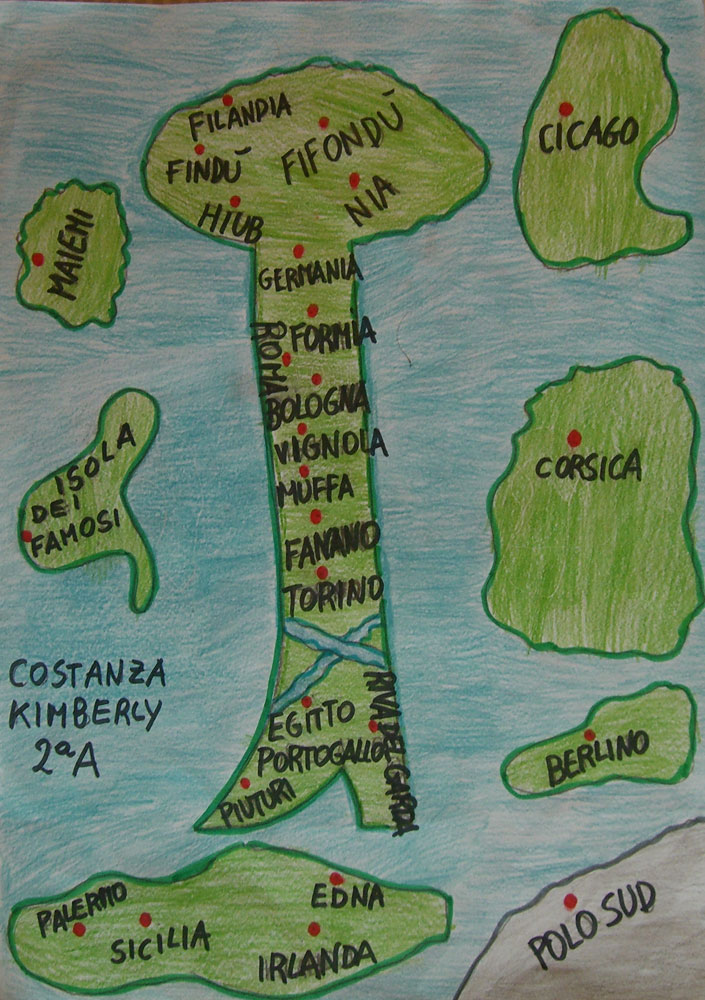 FILANDIA
FIFONDŪ
FINDŪ
HIUB
NIA
CICAGO
MAIENI
GERMANIA
FORMIA
ROMA
BOLOGNA
VIGNOLA
MUFFA
FANANO
TORINO
ISOLA
DEI
FAMOSI
CORSICA
COSTANZA
KIMBERLY
2ªA
EGITTO
PORTOGALLO
PIUTURI
RIVA DEL GARDA
BERLINO
PALERMO
SICILIA
EDNA
IRLANDA
POLO SUD